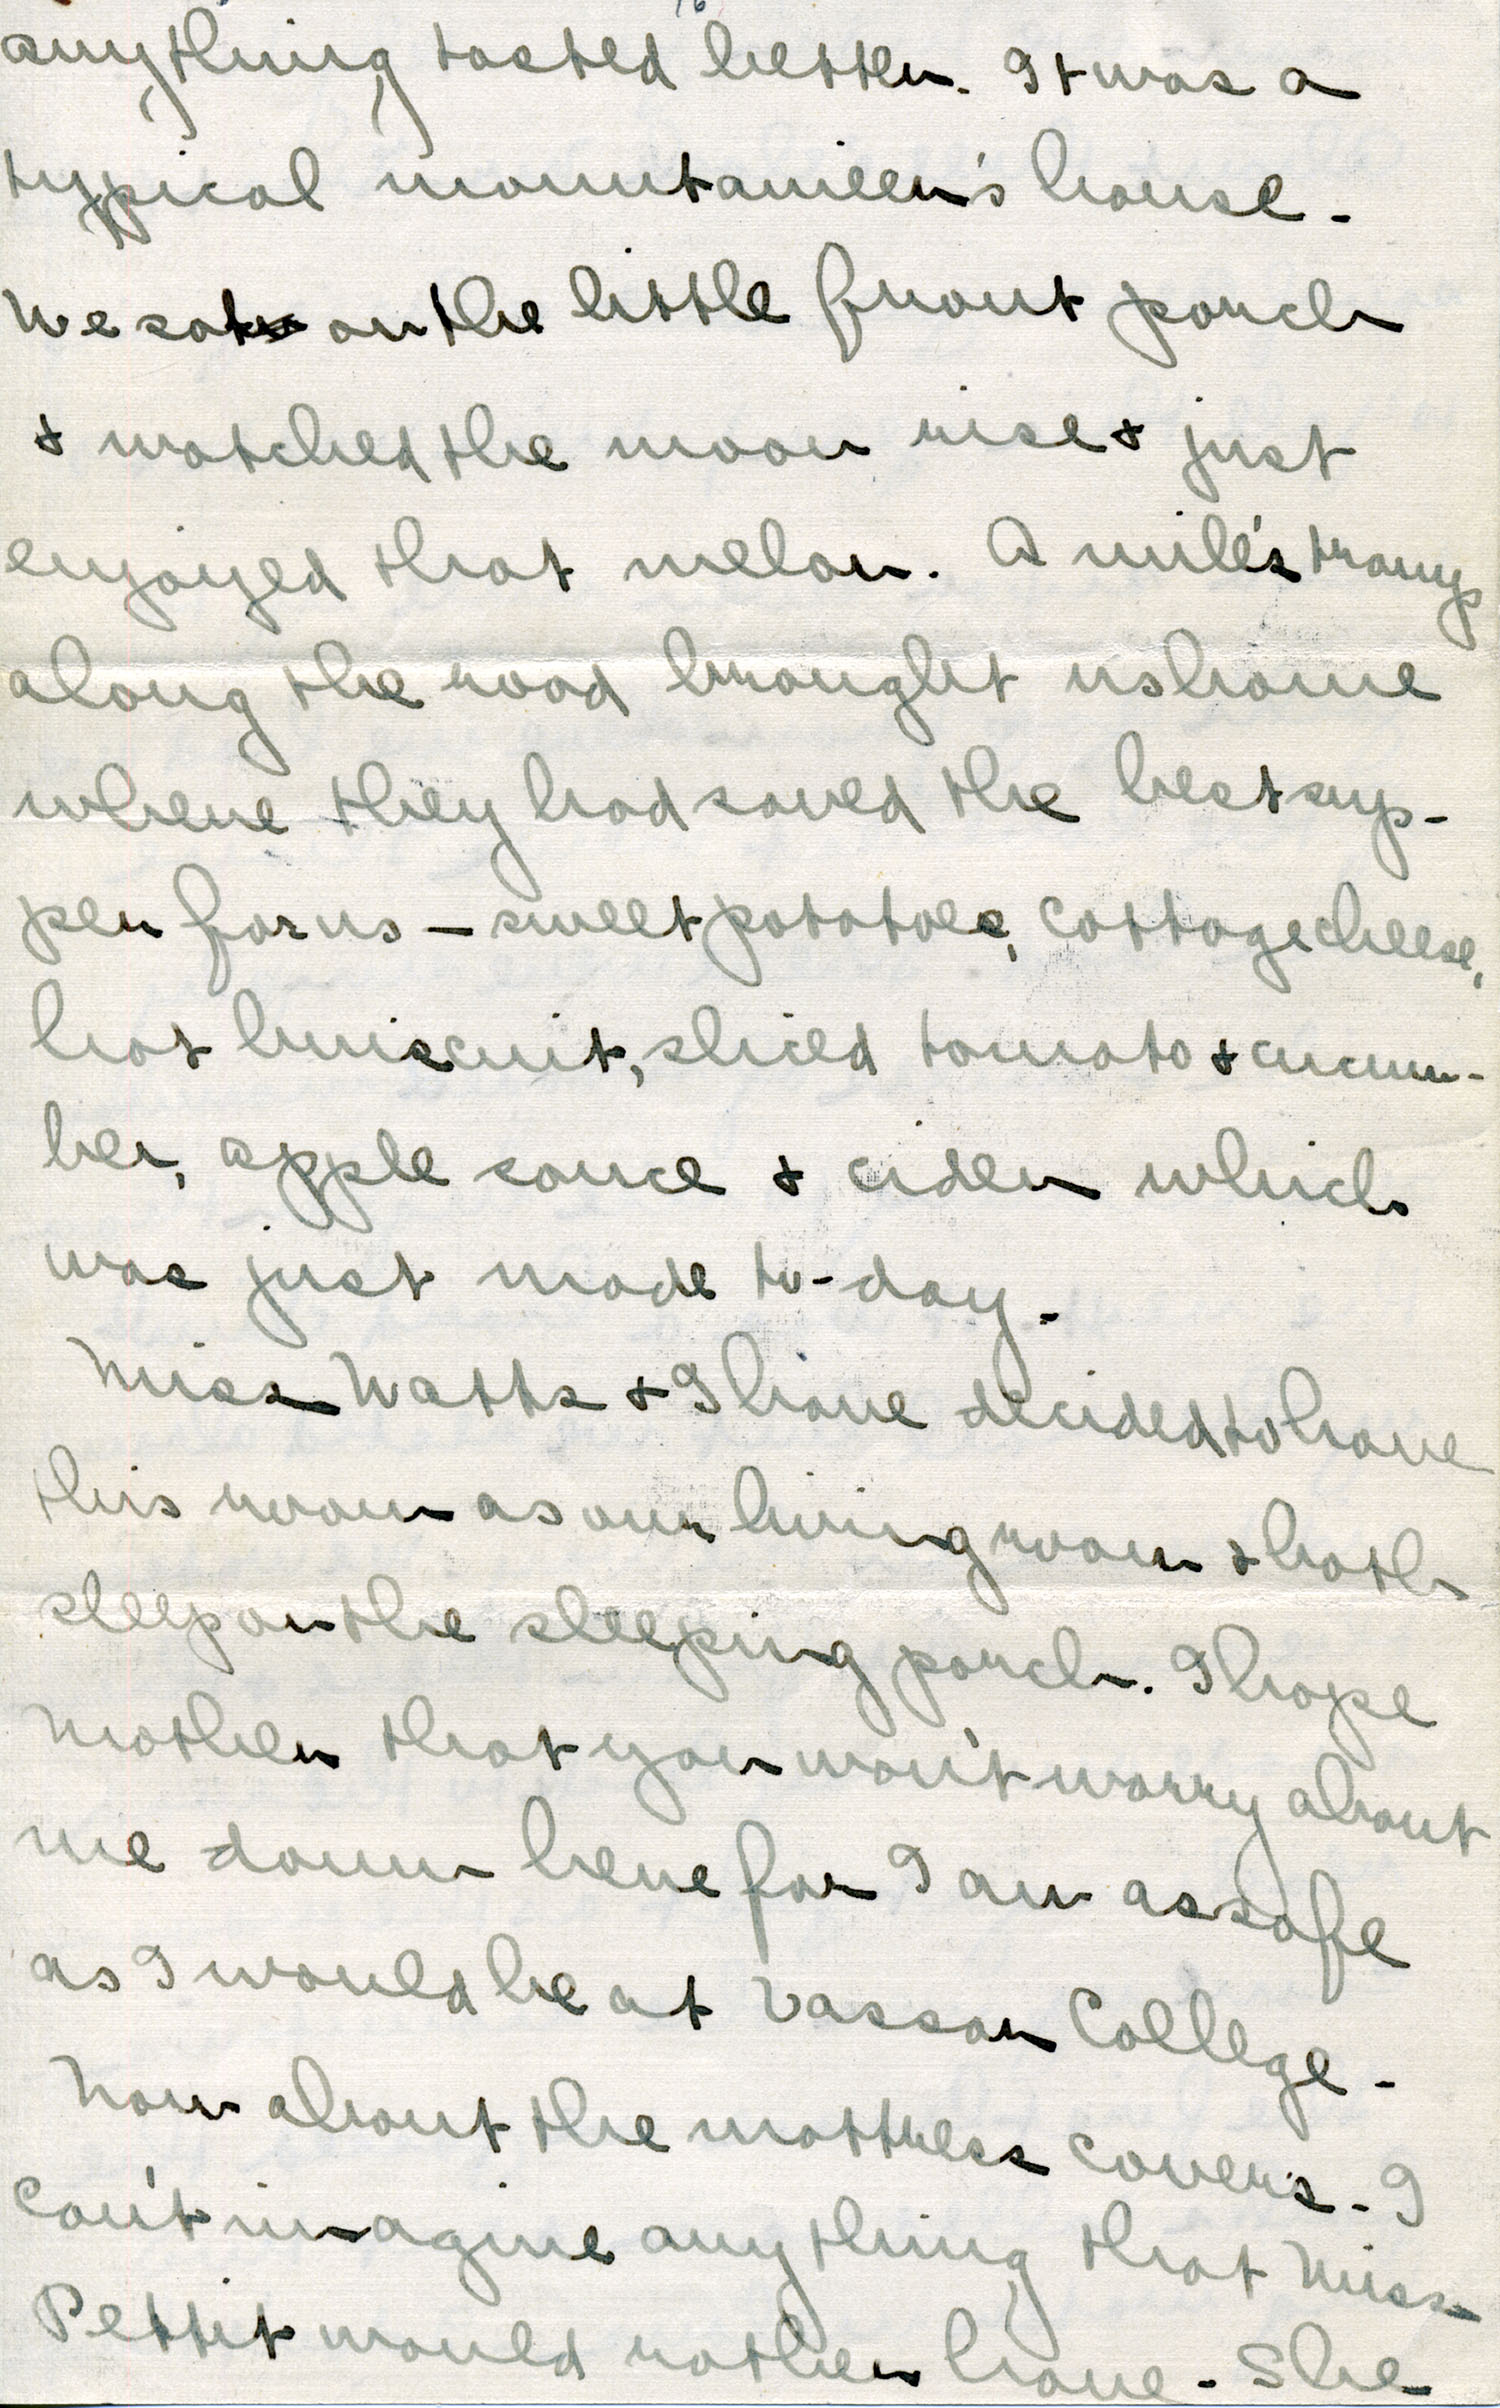 anything tasted better. It was a
typical mountaineer's house.
We sat on the little front porch
& watched the moon rise & just
enjoyed that melon. A mile's tramp
along the road brought us home
where they had saved the best sup-
per for us - sweet potatoes, cottage cheese,
hot buiscuit, sliced tomato & cucum-
ber, apple sauce & cider which
was just made to-day.
Miss Watts & I have decided to have
this room as our living room & both
sleep on the sleeping porch. I hope
Mother that you won't worry about
me down here for I am as safe
as I would be at Vassar College.
Now about the mattress covers. I
can't imagine anything that Miss
Pettit would rather have. She